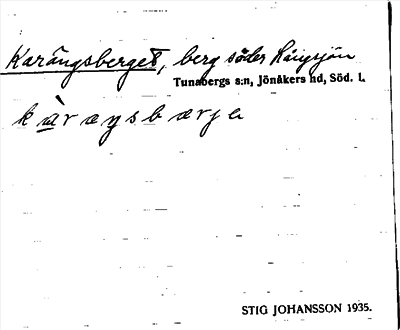 Karängsberget, berg söder Långsjön
Tunabergs s:n, Jönåkers hd, Söd. l.
STIG JOHANSSON 1935.